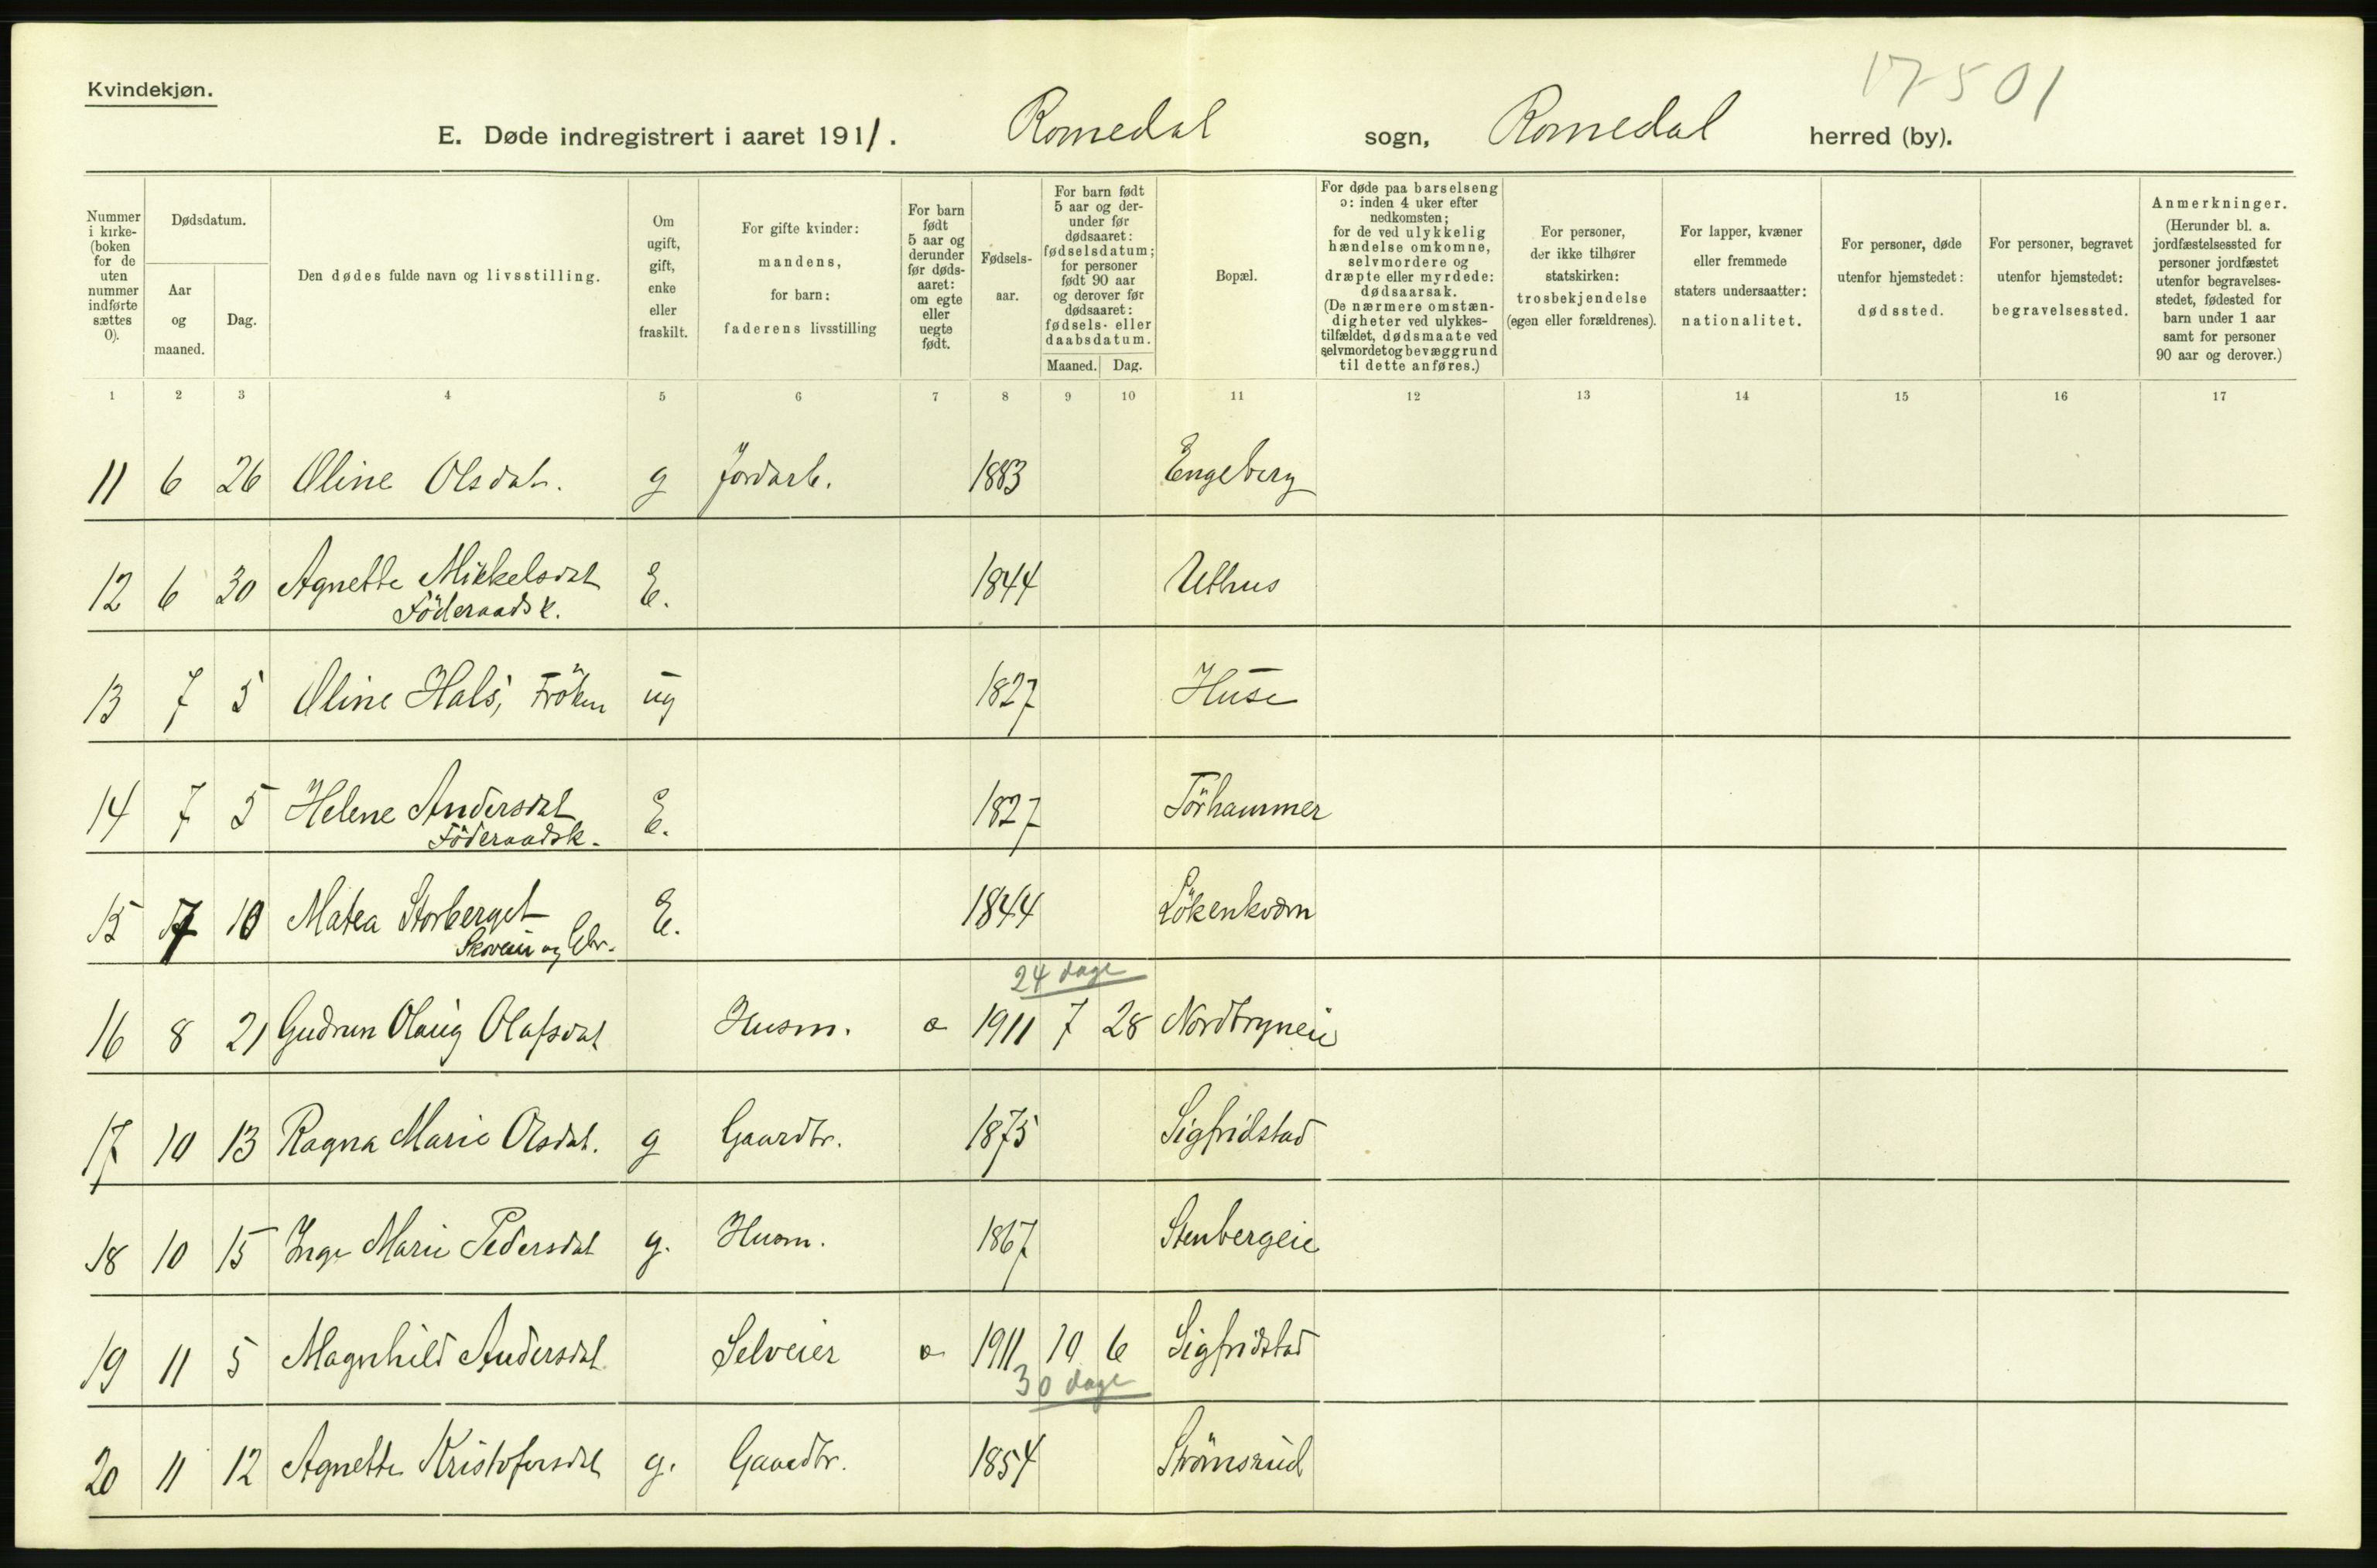 17501
Kvindekjøn.
E. Døde indregistrert i aaret 1911. Romedal sogn, Romedal herred (by).
Nummer i kirke-(boken for de uten nummer indførte sættes 0).
Dødsdatum.
Aar og maaned.
Dag.
Den dødes fulde navn og livsstilling.
Om ugift, gift, enke eller fraskilt.
For gifte kvinder: mandens, for barn: faderens livsstilling
For barn født 5 aar og derunder før døds-aaret: om egte eller uegte født.
Fødsels-aar.
For barn født 5 aar og der-under før dødsaaret: fødselsdatum; for personer født 90 aar og derover før dødsaaret: fødsels- eller daabsdatum.
Maaned. Dag.
Bopæl.
For døde paa barselseng ɔ: inden 4 uker efter nedkomsten; for de ved ulykkelig hændelse omkomne, selvmordere og dræpte eller myrdede: dødsaarsak. (De nærmere omstæn-digheter ved ulykkes-tilfældet, dødsmaate ved selvmord et og bevæggrund til dette anføres.)
For personer, der ikke tilhører statskirken: trosbekjendelse (egen eller forældrenes).
For lapper, kvæner eller fremmede staters undersaatter: nationalitet.
For personer, døde utenfor hjemstedet: dødssted.
For personer, begravet utenfor hjemstedet: begravelsessted.
Anmerkninger. (Herunder bl. a. jordfæstelsessted for personer jordfæstet utenfor begravelses-stedet, fødested for barn under 1 aar samt for personer 90 aar og derover.)
1 2 3 4 5 6 7 8 9 10 11 12 13 14 15 16 17
11 6 26 Oline Olsdat. g Jordarb. 1883 Engeberg
12 6 30 Agnette Mikkelsdat E. 1844 Uthus
Föderaadsk.
13 7 5 Oline Hals, Fröken ug 1827 Huse
14 7 5 Helene Andersdat E. 1827 Törhammer
Föderaadsk.
15 7 10 Matea Storberget E. 1844 Lökenkværn
24 dage
16 8 21 Gudrun Olaug Olafsdat Husm. 1911 7 28 Nordbryneie
17 10 13 Ragna Marie Olsdat. g Gaardbr. 1875 Sigfridstad
18 10 15 Inge Marie Pedersdat g. Husm. 1867 Stenbergeie
19 11 5 Magnhild Andersdat Selveier 1911 10 6 Sigfridstad
30 dage
20 11 12 Agnette Kristofersdat g. Gaardbr. 1854 Strömsrud